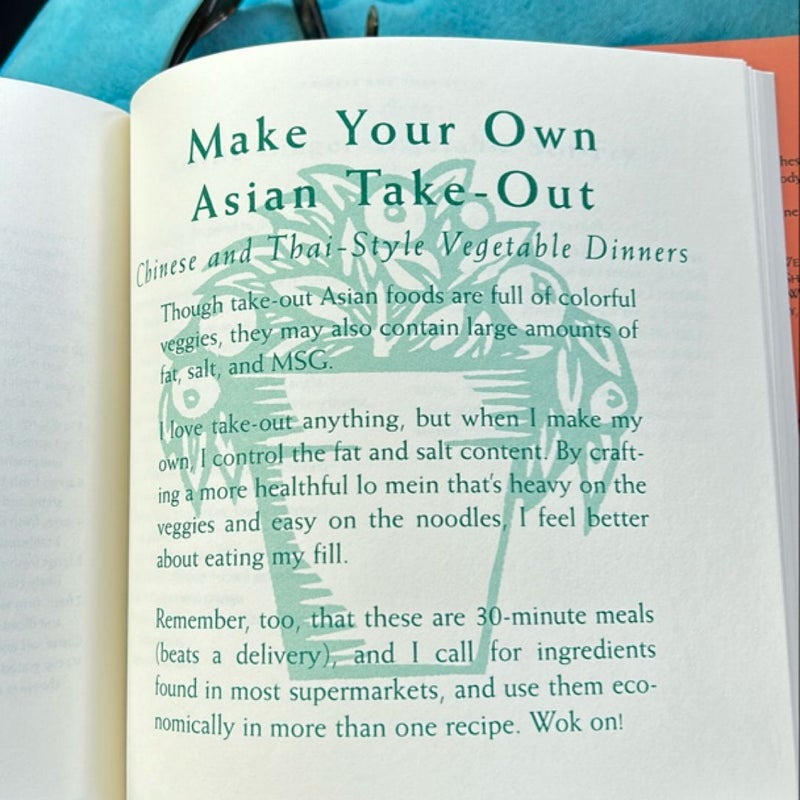 Make Your Own
Asian Take-Out
Chinese and Thai-Style Vegetable Dinners
Though take-out Asian foods are full of colorful
veggies, they may also contain large amounts of
fat, salt, and MSG.
I love take-out anything, but when I make my
own, I control the fat and salt content. By craft-
ing a more healthful lo mein that's heavy on the
veggies and easy on the noodles, I feel better
about eating my fill.
Remember, too, that these are 30-minute meals
(beats a delivery), and I call for ingredients
found in most supermarkets, and use them eco-
nomically in more than one recipe. Wok on!